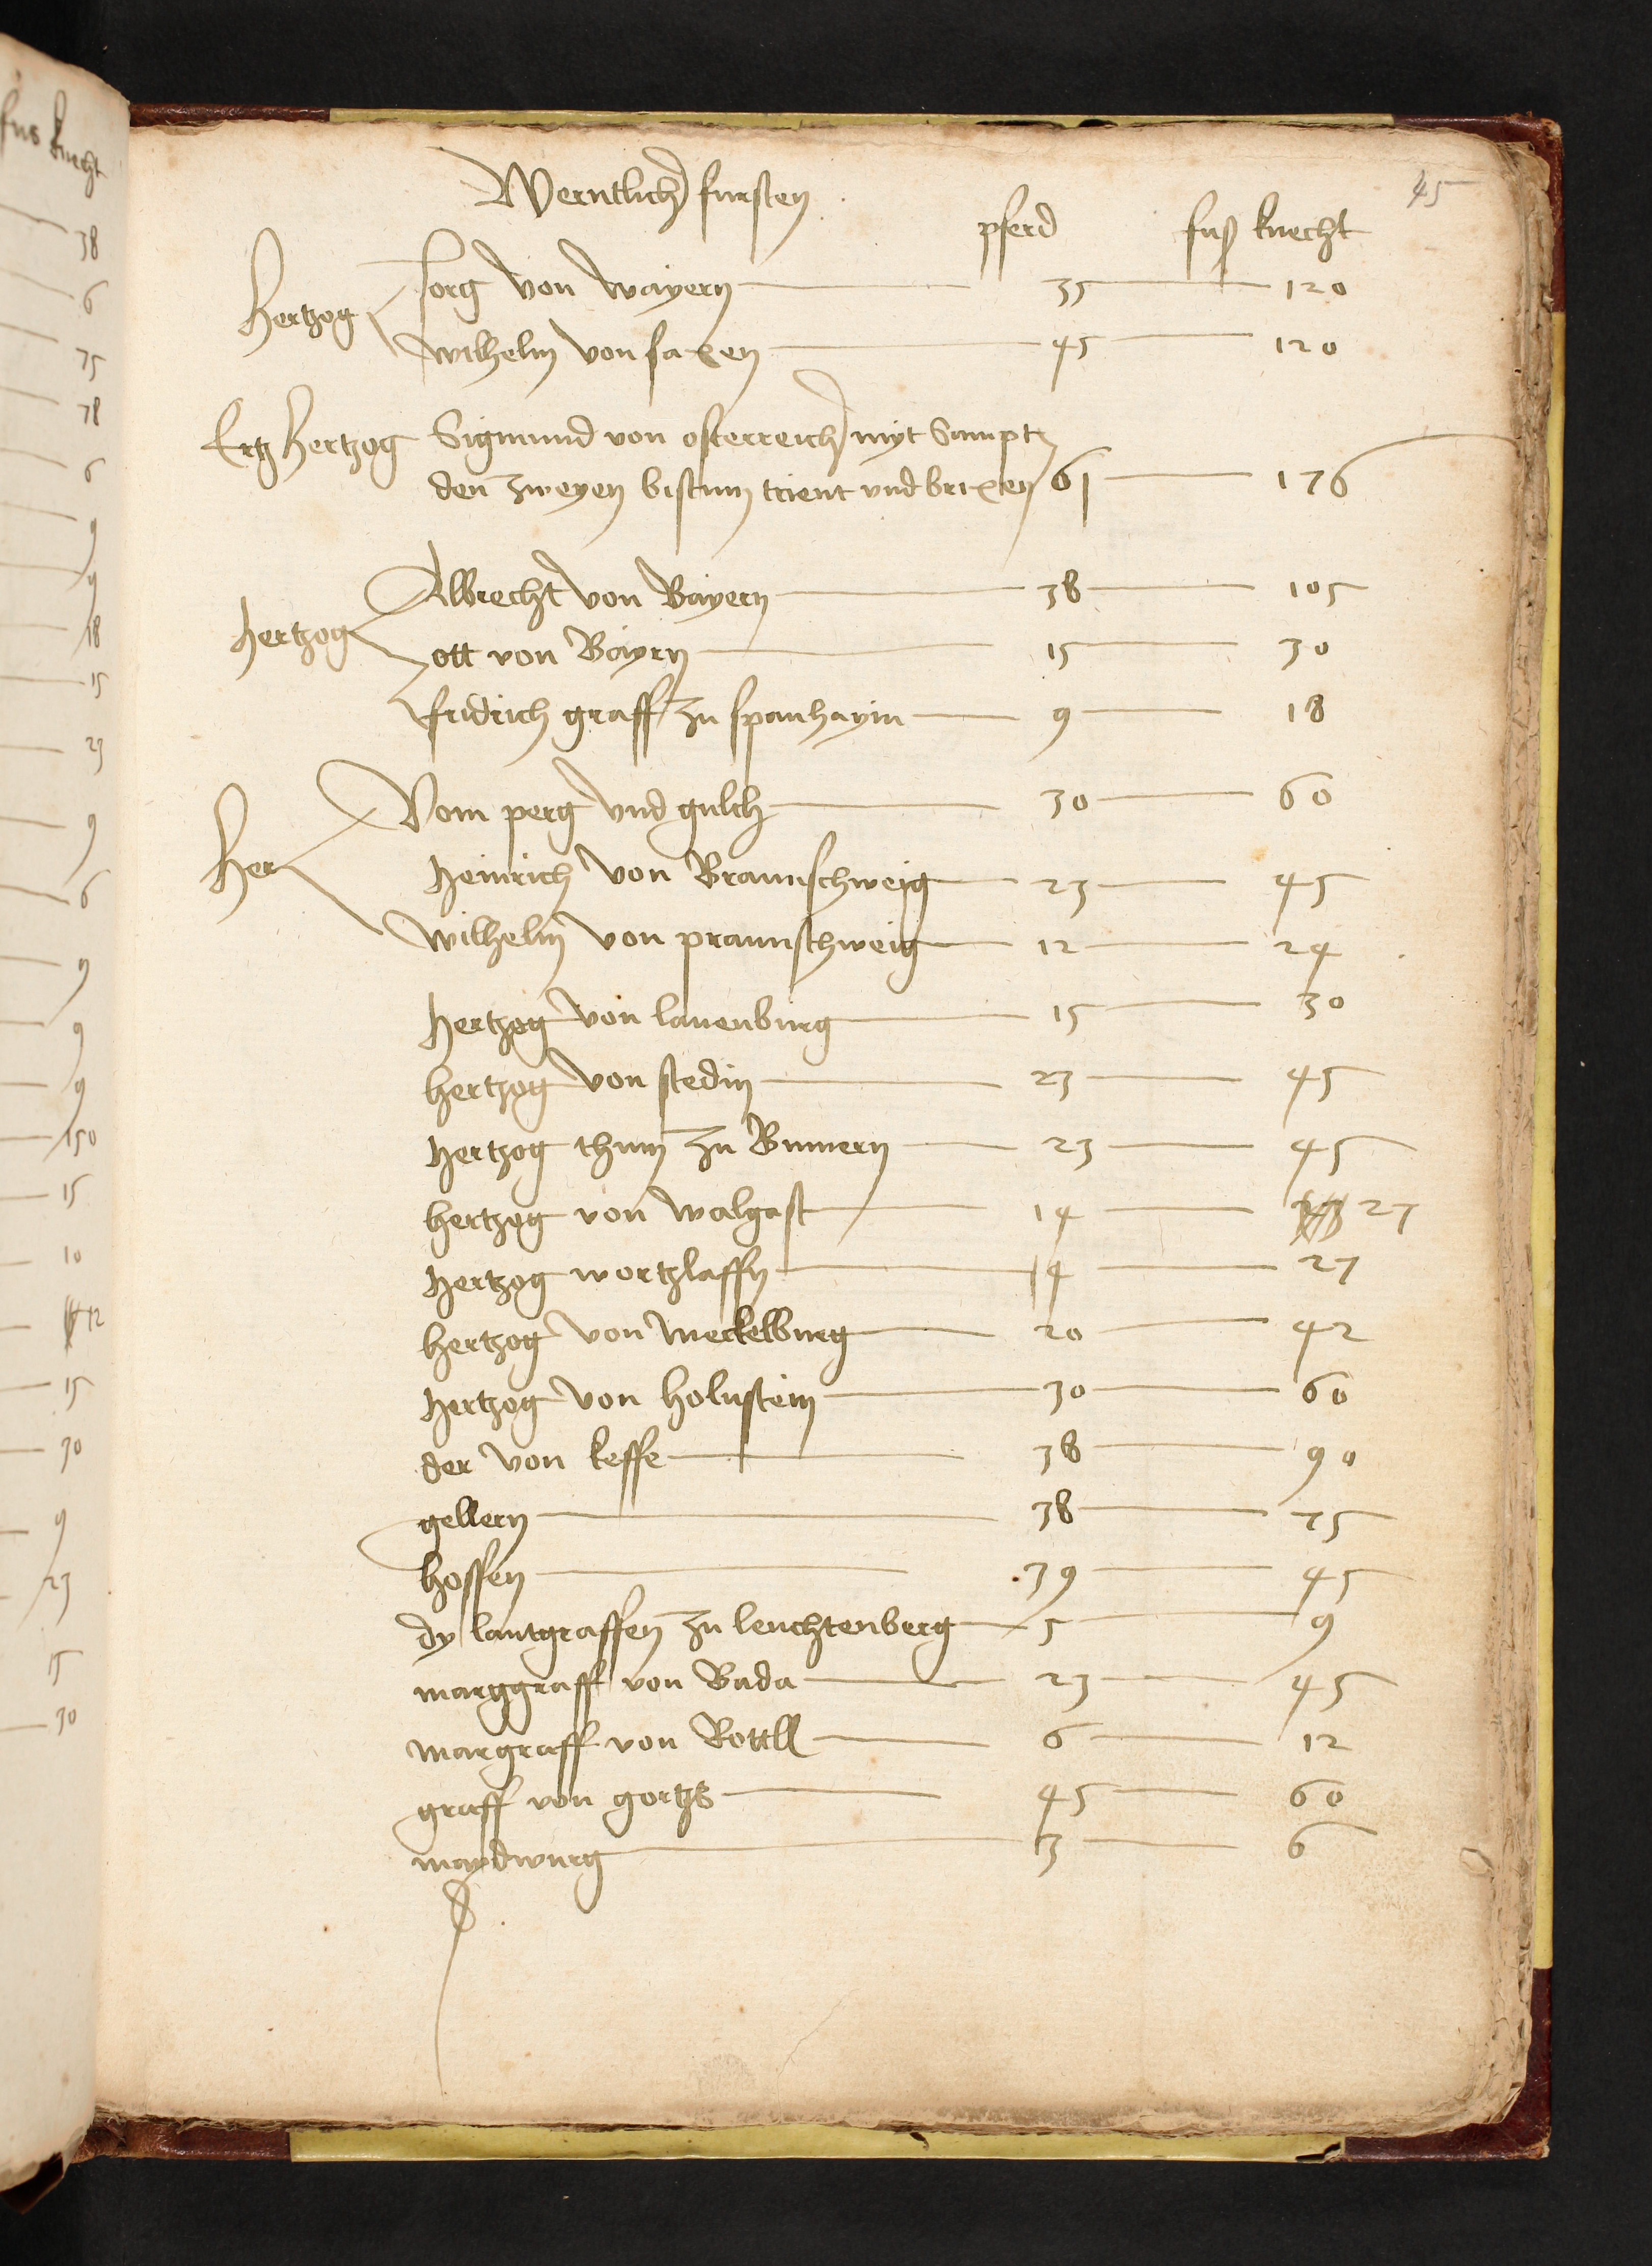 45
Werntlich fursten
pferd fuß knecht
Hertzog
Jorg von Bayern 35 120
Wilhelm von saxen 45 120
Ertzhertzog Sigmund von osterreich myt sampt
den zweyen bistum trient und brixen 61 176
Hertzog
Albrecht von Bayern 38 105
ott von Bayrn 15 30
fridrich graff zu spanhaym 9 18
Her
Vom perg und gulch 30 60
Heinrich von Braunschweig 23 45
Wilhelm von praunschweig 12 24
Hertzog von lauenburg 15 30
hertzog von stedin 23 45
Hertzog thum zu Bumern 23 45
hertzog von walgast 14 27
Hertzog wortzlaffn 14 27
hertzog von Meckelburg 20 42
Hertzog von holnstein 30 60
der von keffe 38 90
gellern 38 75
hossen 39 45
dy lantgraffen zu leuchtenberg 5 9
marggraff von Bada 23 45
margraff von Rottll 6 12
graff von gortzs 45 60
maydwurg 3 6
fus knecht
38
6
75
78
6
9
9
18
15
23
9
6
9
9
9
150
15
10
12
15
30
9
23
15
30